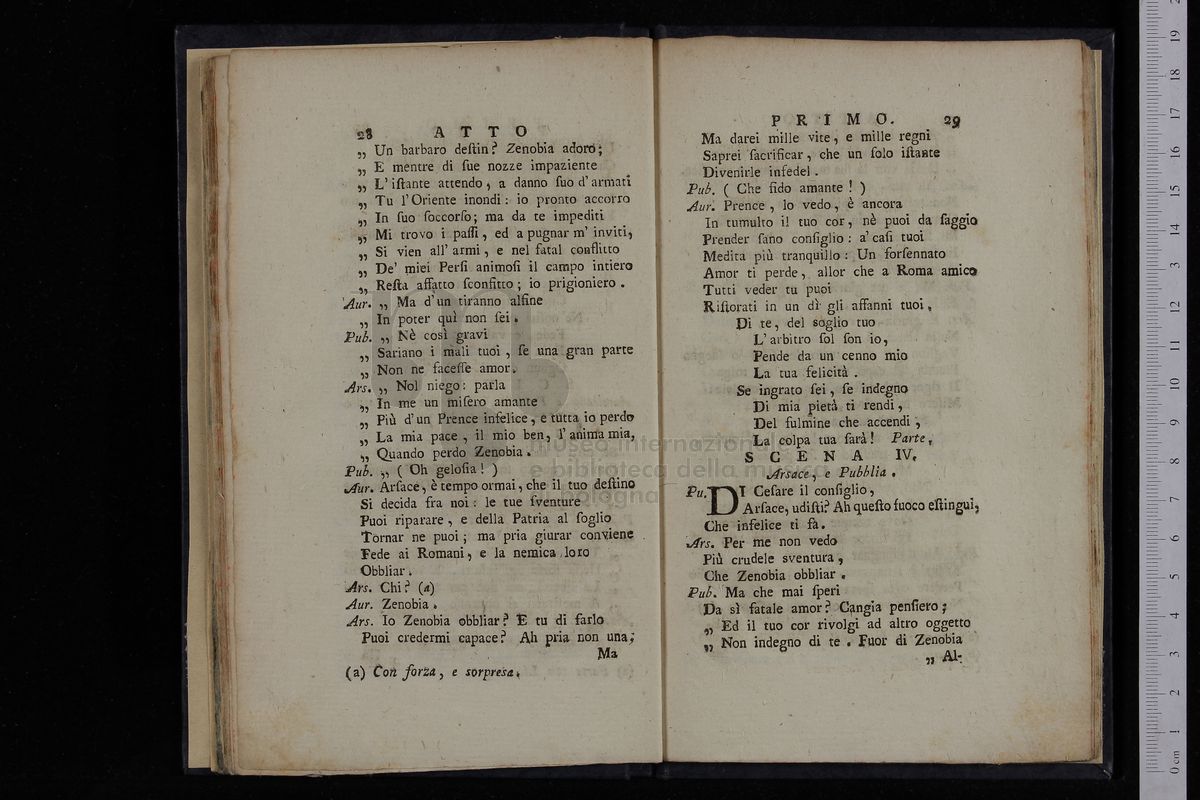 28 A T T O
„ Un barbaro deſtin? Zenobia adoro;
„ E mentre di ſue nozze impaziente
„ L' iſtante attendo, a danno ſuo d'armati
„ Tu l'Oriente inondi: io pronto accorro
„ In ſuo ſoccorſo; ma da te impediti
„ Mi trovo i paſſi, ed a pugnar m' inviti,
„ Si vien all' armi, e nel fatal conflitto
„ De' miei Perſi animoſi il campo intiero
„ Reſta affatto ſconfitto; io prigioniero.
Aur. „ Ma d'un tiranno alfine
„ In poter quì non ſei.
Pub. „ Nè così gravi
„ Sariano i mali tuoi, ſe una gran parte
„ Non ne faceſſe amor.
Ars. „ Nol niego: parla
„ In me un miſero amante
„ Più d'un Prence infelice, e tutta io perdo
„ La mia pace, il mio ben, l'anima mia,
„ Quando perdo Zenobia.
Pub. „ ( Oh geloſia! )
Aur. Arſace, è tempo ormai, che il tuo deſtino
Si decida fra noi: le tue ſventure
Puoi riparare, e della Patria al ſoglio
Tornar ne puoi; ma pria giurar conviene
Fede ai Romani, e la nemica loro
Obbliar.
Ars. Chi? (a)
Aur. Zenobia.
Ars. Io Zenobia obbliar? E tu di farlo
Puoi credermi capace? Ah pria non una;
Ma
(a) Con forza, e sorpresa.
P R I M O. 29
Ma darei mille vite, e mille regni
Saprei ſacrificar, che un ſolo iſtante
Divenirle infedel.
Pub. ( Che fido amante! )
Aur. Prence, lo vedo, è ancora
In tumulto il tuo cor, nè puoi da ſaggio
Prender ſano conſiglio: a' caſi tuoi
Medita più tranquillo: Un forſennato
Amor ti perde, allor che a Roma amico
Tutti veder tu puoi
Riſtorati in un dì gli affanni tuoi.
Di te, del soglio tuo
L' arbitro ſol ſon io,
Pende da un cenno mio
La tua felicità.
Se ingrato ſei, ſe indegno
Di mia pietà ti rendi,
Del fulmine che accendi,
La colpa tua ſarà! Parte.
S C E N A IV.
Arsace, e Pubblia.
Pu. DI Ceſare il conſiglio,
Arſace, udiſti? Ah queſto fuoco eſtingui,
Che infelice ti fa.
Ars. Per me non vedo
Più crudele sventura,
Che Zenobia obbliar.
Pub. Ma che mai ſperi
Da sì fatale amor? Cangia penſiero;
„ Ed il tuo cor rivolgi ad altro oggetto
„ Non indegno di te. Fuor di Zenobia
„ Al-
museo internazionale
e biblioteca della musica
di bologna